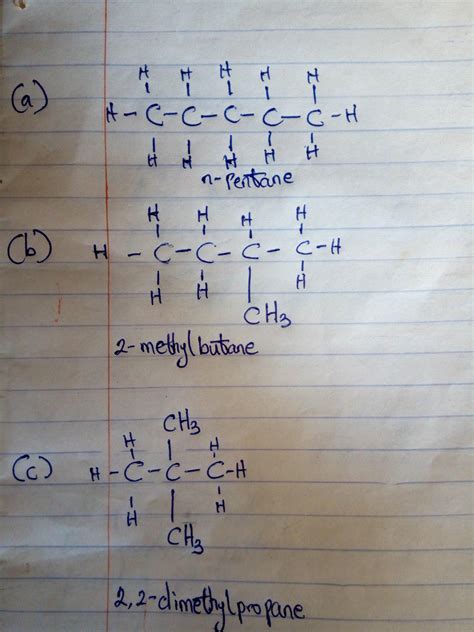 H H H H H
(a) H - C - C - C - C - C - H
H H H H H
n-Pentane
H H H H
(b) H - C - C - C - C - H
H H H
CH3
2-methylbutane
CH3
H H
(c) H - C - C - C - H
H H
CH3
2,2-dimethylpropane